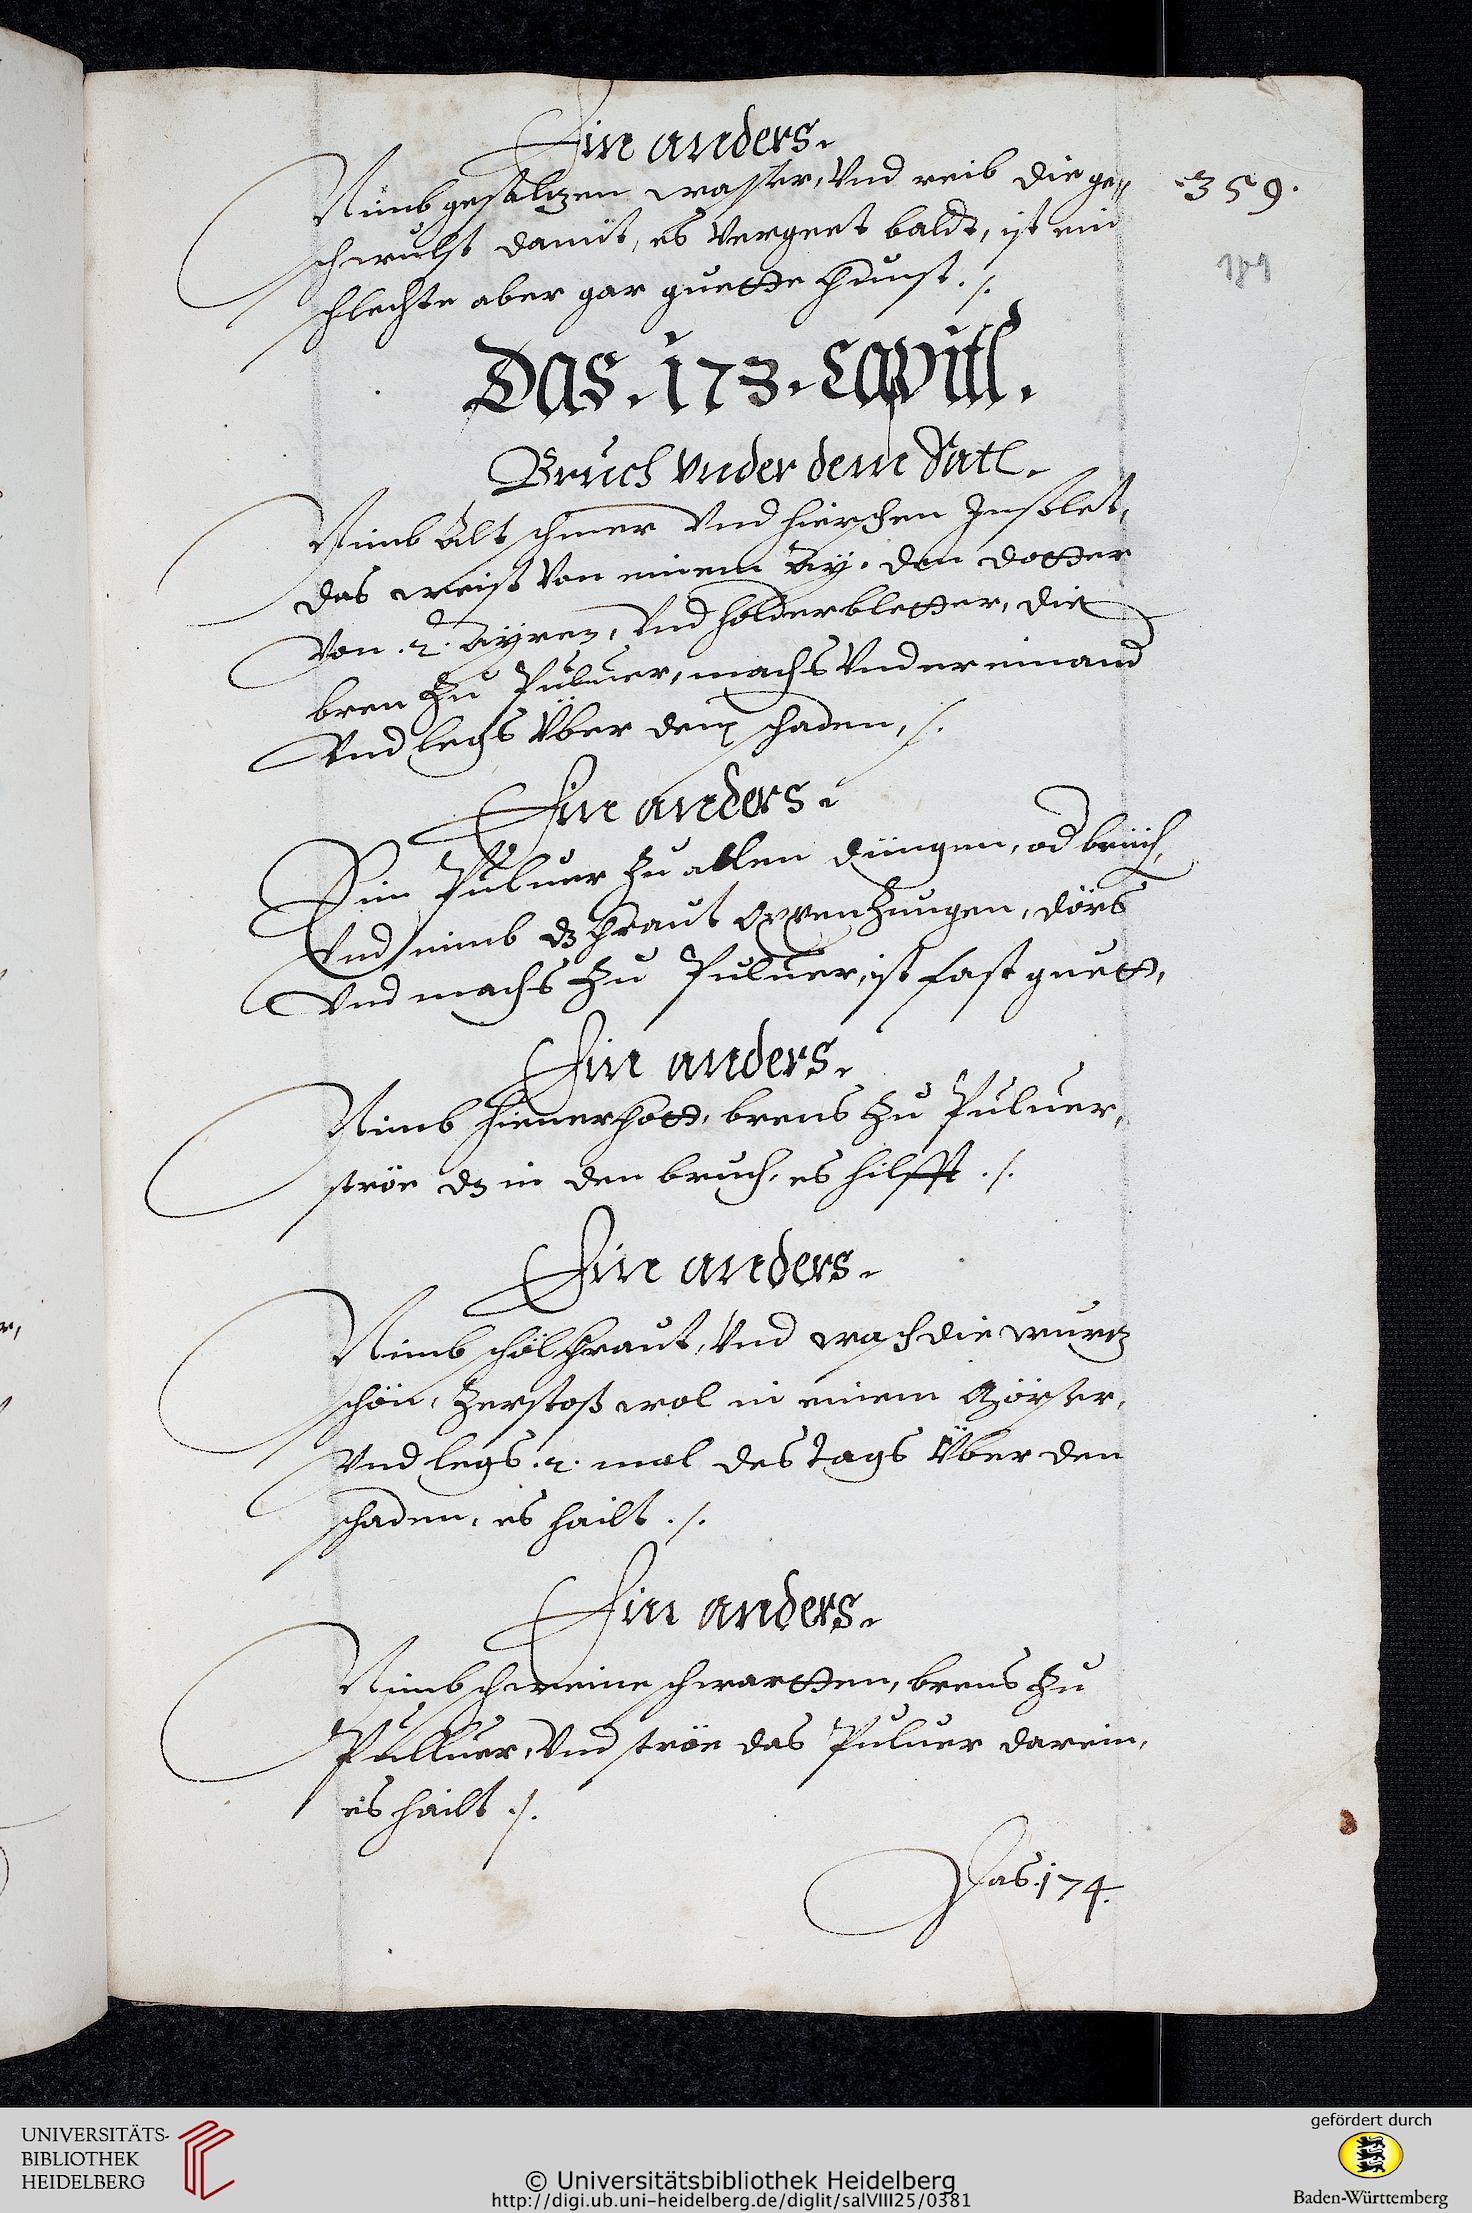 Ein anders.
Nimb gesaltzen wasser, Vnd reib die ge„
schwulst damit, es vergeet baldt, ist ein
schlechte aber gar guette khunst ./.
.359.
189
Das .173. Capitl.
Bruch Vnder dem Satl.
Nimb Alt schmer Vnd hierschen Inslet,
das weist Von einem Ay, den dotter
Von .2. Ayren, Vnd holderbletter, die
bren zu Puluer, machs Vndereinand
Vnd legs Über den schaden, ./.
Ein anders.
Ein Puluer zu allen dingen, od brüch,
Vnd nimb dz khraut Oxenzungen, dörs
Vnd machs zu Puluer, ist fast guett,
Ein anders.
Nimb hienerkhott, brens zu Puluer,
ströe dz in den bruch, es hilfft ./.
Ein anders.
Nimb schölkhraut, Vnd wasch die wurtz
schön, zerstoß wol in einem Mörser,
Vnd legs .2. mal des Tags Über den
schaden, es hailt ./.
Ein anders.
Nimb schweine schwartten, brens zu
Pulluer, Vnd ströe das Puluer darein,
es hailt ./.
Das .174.
UNIVERSITÄTS-
BIBLIOTHEK
HEIDELBERG
© Universitätsbibliothek Heidelberg
http://digi.ub.uni-heidelberg.de/diglit/salVIII25/0381
gefördert durch
Baden-Württemberg